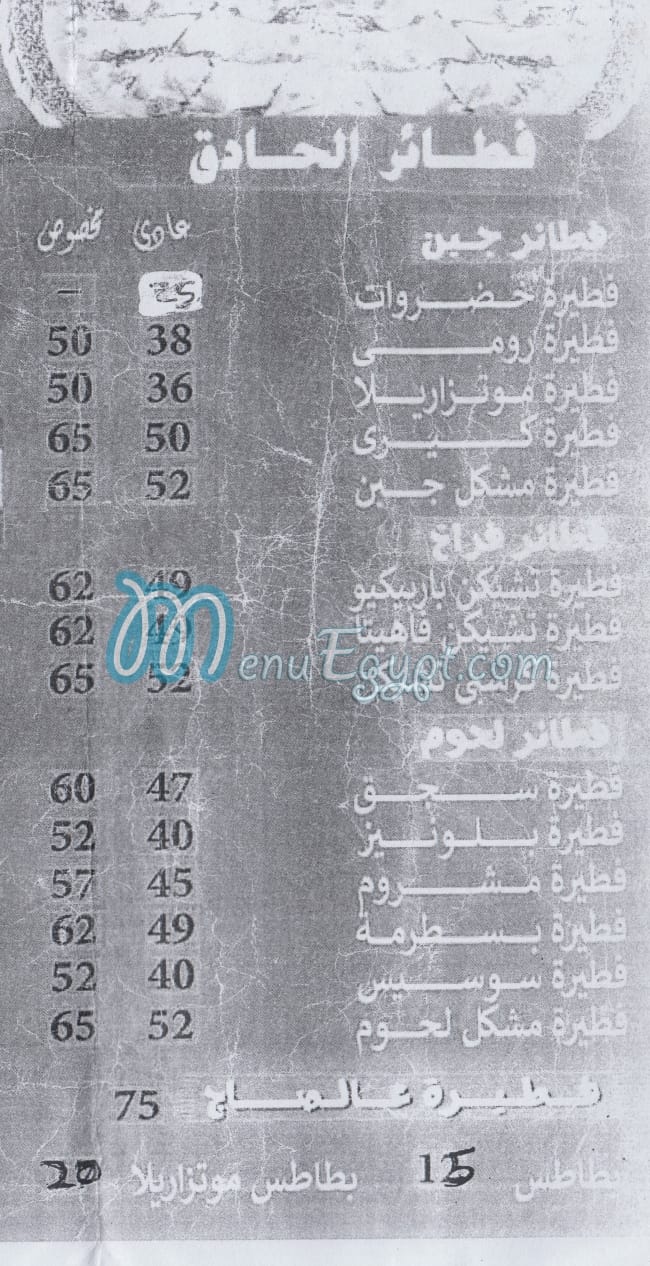 فطائر الحادق
فطائر جبن عادى مخصوص
فطيرة خضروات 25 -
فطيرة رومى 38 50
فطيرة موتزاريلا 36 50
فطيرة كيرى 50 65
فطيرة مشكل جبن 52 65
فطائر فراخ
فطيرة تشيكن باربيكيو 49 62
فطيرة تشيكن فاهيتا 49 62
فطيرة كرسبى 52 65
MenuEgypt.com
فطائر لحوم
فطيرة سجق 47 60
فطيرة بلونيز 40 52
فطيرة مشروم 45 57
فطيرة بسطرمة 49 62
فطيرة سوسيس 40 52
فطيرة مشكل لحوم 52 65
فطيرة عالصاج 75
بطاطس 15 بطاطس موتزاريلا 20